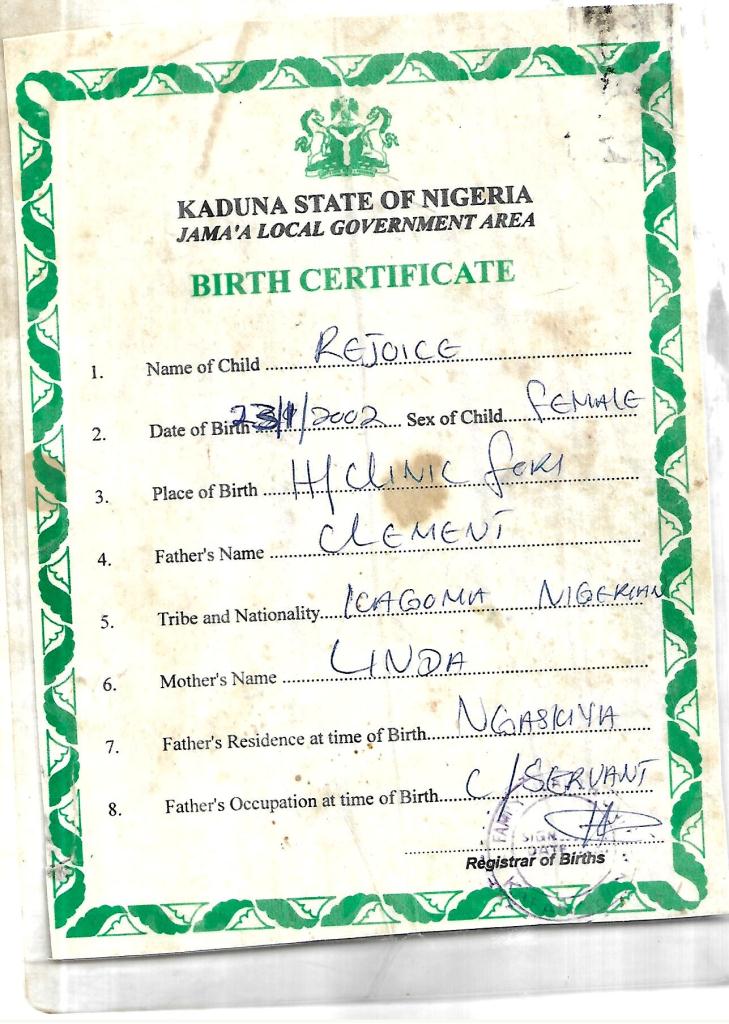 KADUNA STATE OF NIGERIA
JAMA'A LOCAL GOVERNMENT AREA
BIRTH CERTIFICATE
1. Name of Child REJOICE
2. Date of Birth /2002 Sex of Child FEMALE
3. Place of Birth H/CLINIC
4. Father's Name CLEMENT
5. Tribe and Nationality KAGOMA NIGERIAN
6. Mother's Name LINDA
7. Father's Residence at time of Birth NGASKIYA
8. Father's Occupation at time of Birth C/SERVANT
SIGN
DATE
Registrar of Births